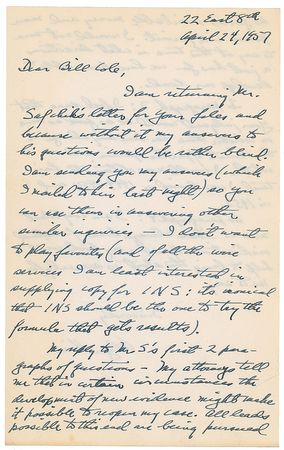 22 East 8th
April 24, 1957
Dear Bill Cole,
I am returning Mr.
letter for your files and
because without it my answers to
his questions would be rather blind.
I am sending you my answers (which
I mailed to him last night) so you
can use them in answering other
similar inquiries — I don't want
to play favorites (and of all the wire
services I am least interested in
supplying copy for INS; it's ironical
that INS should be the one to try the
formula that gets results).
My reply to Mr S's first 2 para-
graphs of questions — My attorneys tell
me that in certain circumstances the
development of new evidence might make
it possible to reopen my case. All leads
possible to this end are being pursued